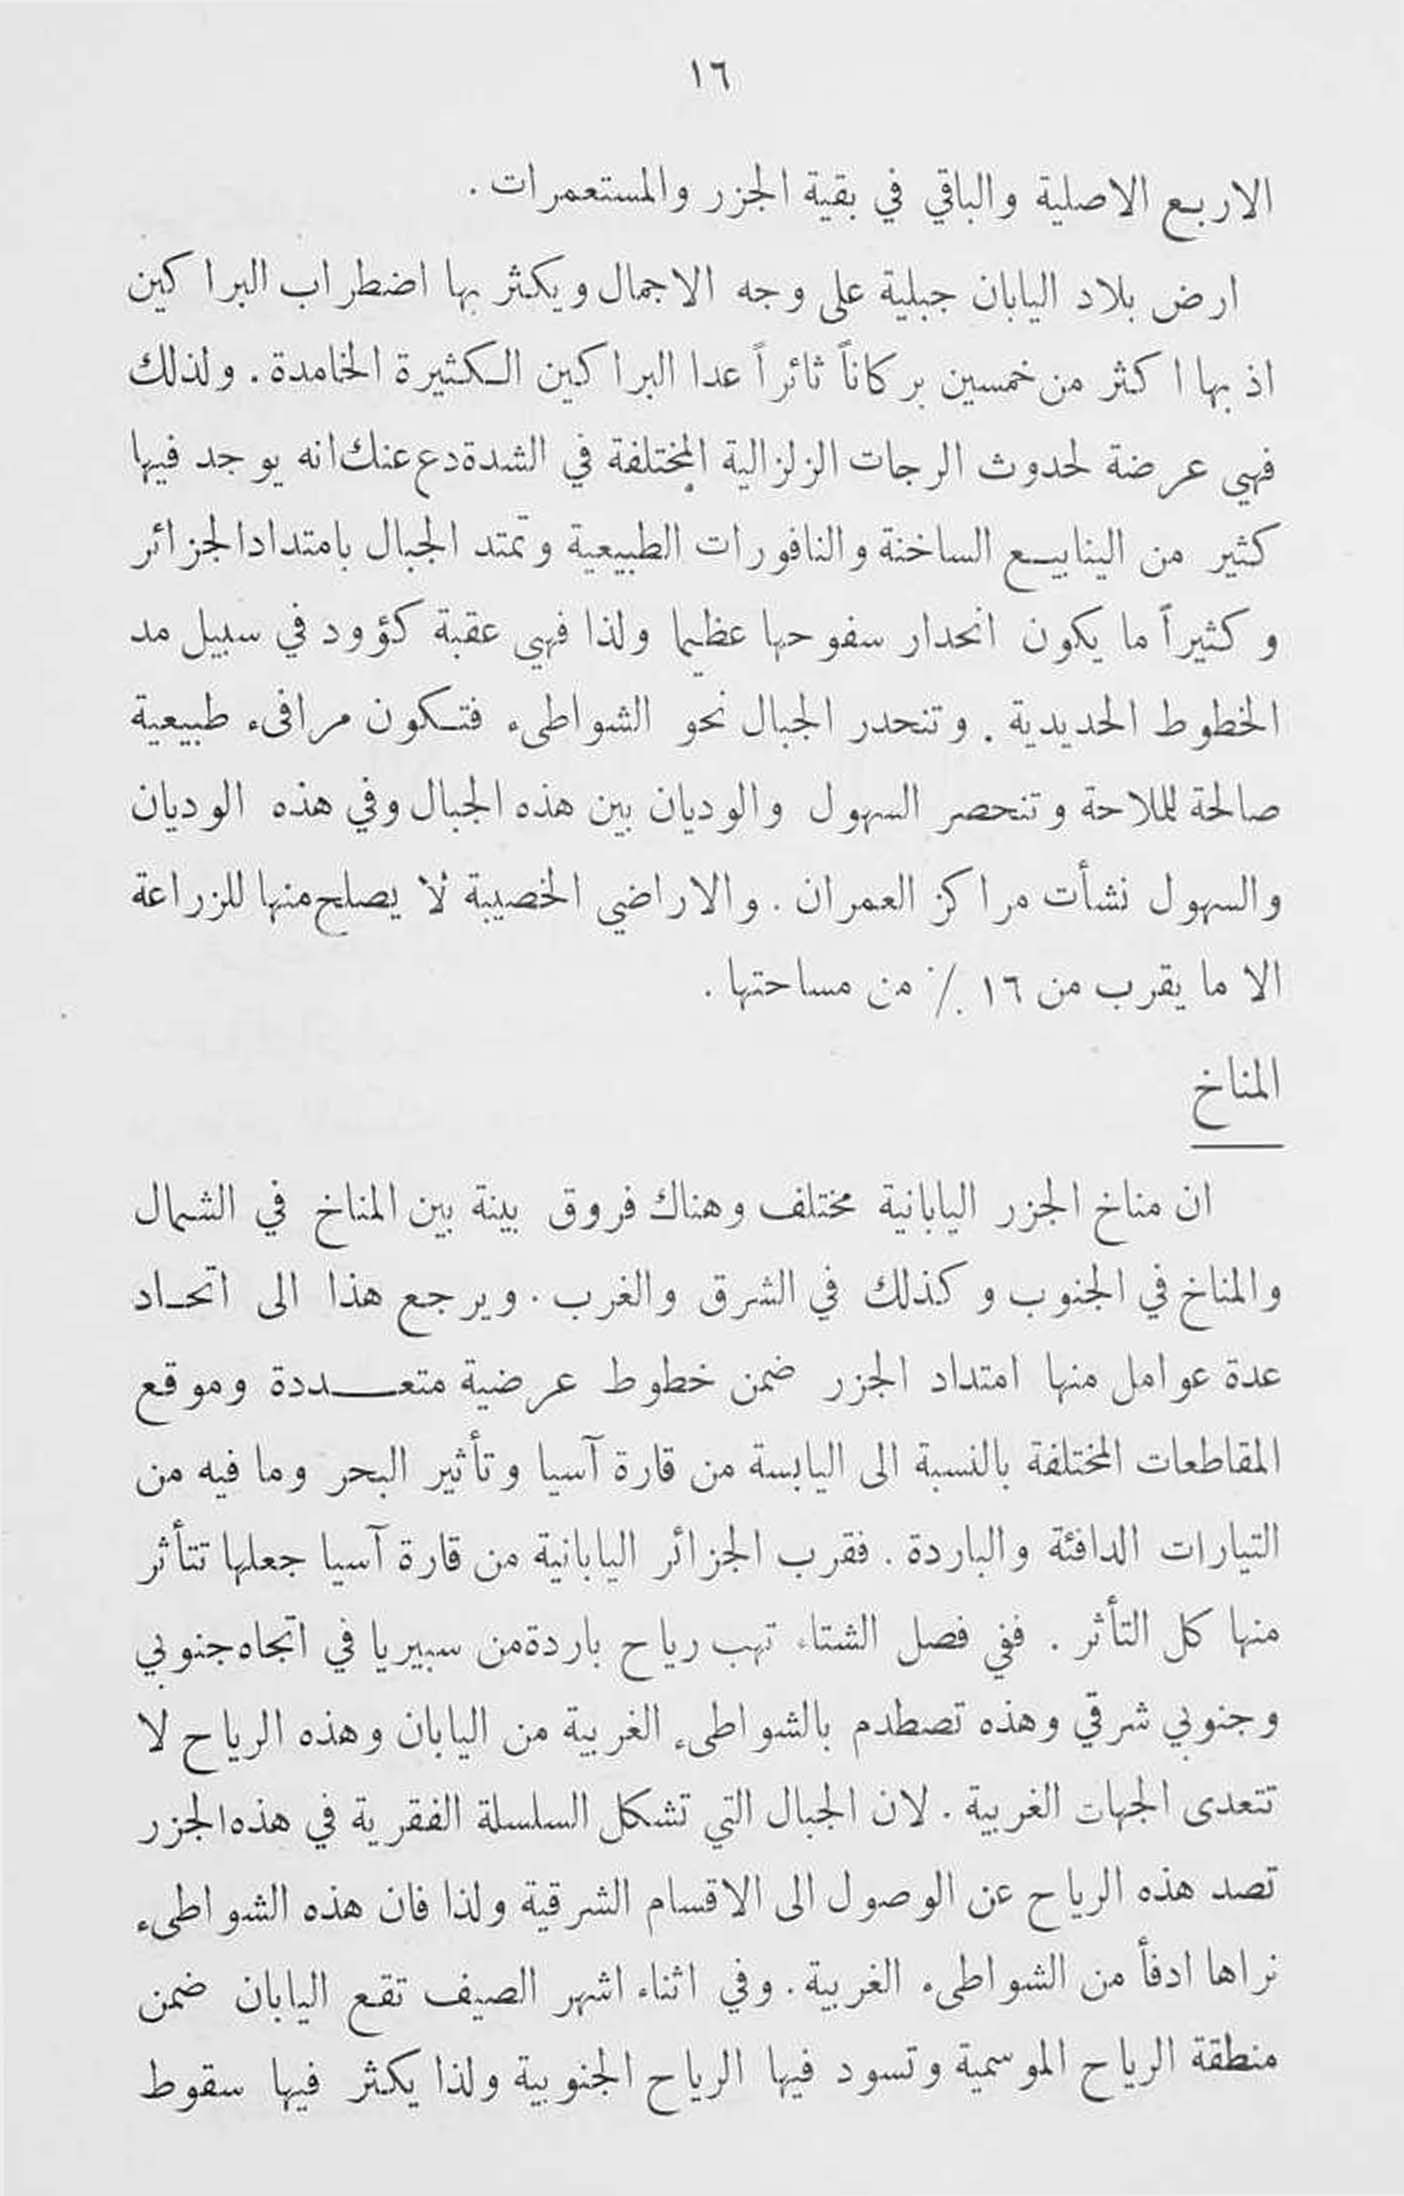 ١٦
الاربع الاصلية والباقي في بقية الجزر والمستعمرات .
ارض بلاد اليابان جبلية على وجه الاجمال ويكثر بها اضطراب البراكين
اذ بها اكثر من خمسين بركاناً ثائراً عدا البراكين الكثيرة الخامدة . ولذلك
فهي عرضة لحدوث الرجات الزلزالية المختلفة في الشدة دع عنك انه يوجد فيها
كثير من الينابيع الساخنة والنافورات الطبيعية وتمتد الجبال بامتداد الجزائر
وكثيراً ما يكون انحدار سفوحها عظيما ولذا فهي عقبة كؤود في سبيل مد
الخطوط الحديدية . وتنحدر الجبال نحو الشواطىء فتكون مرافىء طبيعية
صالحة للملاحة وتنحصر السهول والوديان بين هذه الجبال وفي هذه الوديان
والسهول نشأت مراكز العمران . والاراضي الخصيبة لا يصلح منها للزراعة
الا ما يقرب من ١٦ ٪ من مساحتها .
المناخ
ان مناخ الجزر اليابانية مختلف وهناك فروق بينة بين المناخ في الشمال
والمناخ في الجنوب وكذلك في الشرق والغرب . ويرجع هذا الى اتحاد
عدة عوامل منها امتداد الجزر ضمن خطوط عرضية متعددة وموقع
المقاطعات المختلفة بالنسبة الى اليابسة من قارة آسيا وتأثير البحر وما فيه من
التيارات الدافئة والباردة . فقرب الجزائر اليابانية من قارة آسيا جعلها تتأثر
منها كل التأثر . ففي فصل الشتاء تهب رياح باردة من سبيريا في اتجاه جنوبي
وجنوبي شرقي وهذه تصطدم بالشواطىء الغربية من اليابان وهذه الرياح لا
تتعدى الجهات الغربية . لان الجبال التي تشكل السلسلة الفقرية في هذه الجزر
تصد هذه الرياح عن الوصول الى الاقسام الشرقية ولذا فان هذه الشواطىء
نراها ادفأ من الشواطىء الغربية . وفي اثناء اشهر الصيف تقع اليابان ضمن
منطقة الرياح الموسمية وتسود فيها الرياح الجنوبية ولذا يكثر فيها سقوط